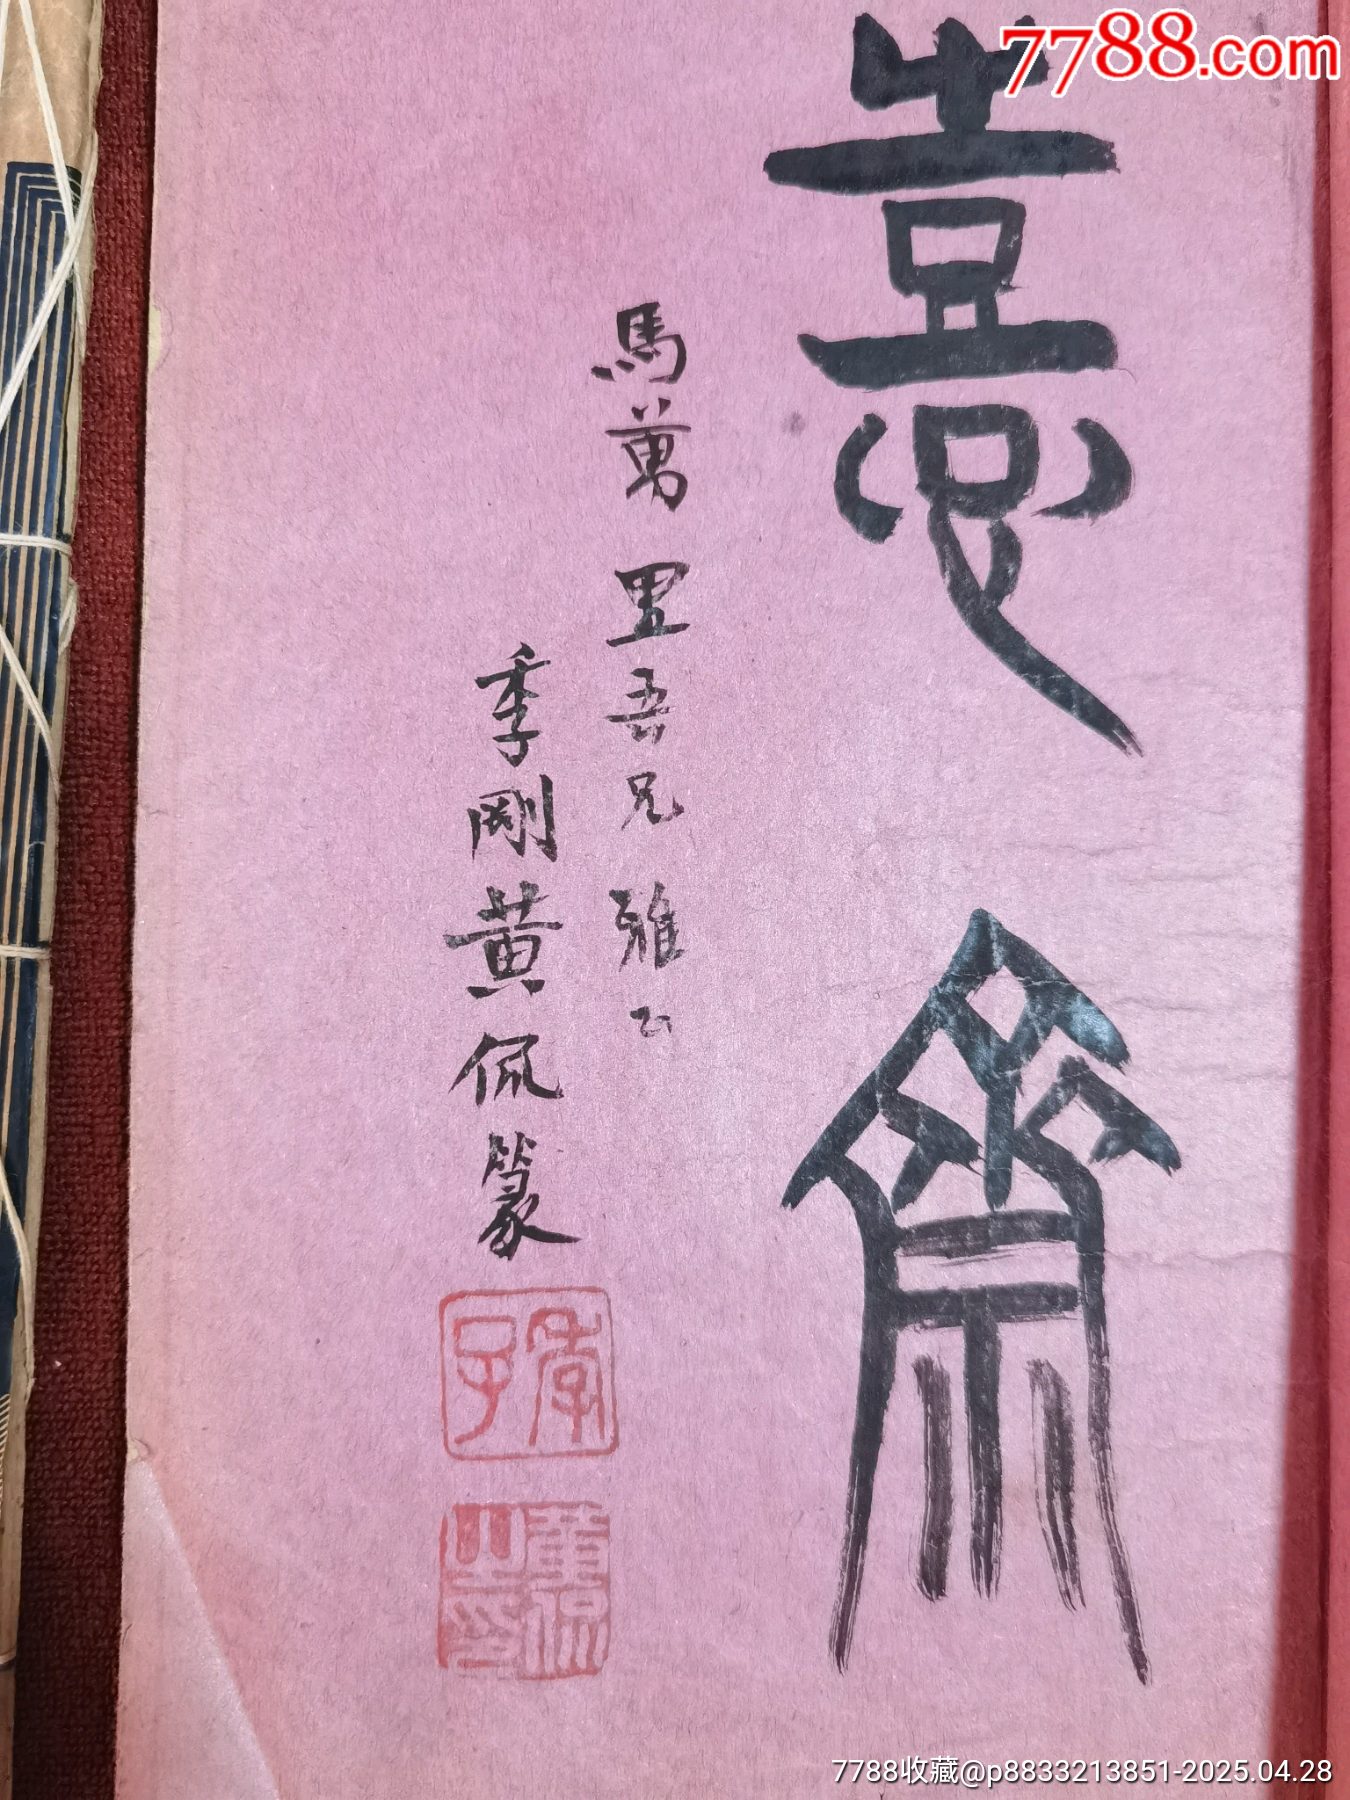 7788.com
憙齋
馬萬里吾兄雅正
季剛黄侃篆
季子
黄侃之印
7788收藏@p8833213851-2025.04.28